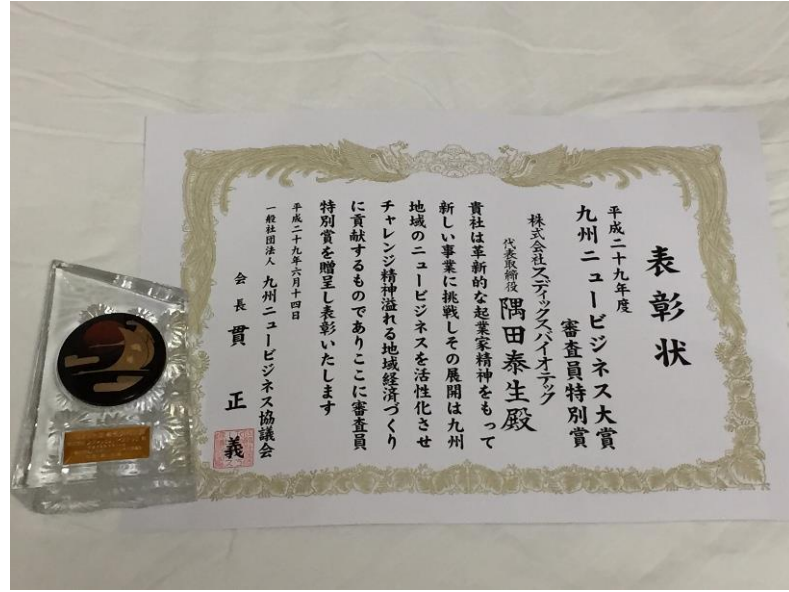 表彰状
平成二十九年度
九州ニュービジネス大賞
審査員特別賞
株式会社スディックスバイオテック
代表取締役 隅田泰生殿
貴社は革新的な起業家精神をもって
新しい事業に挑戦しその展開は九州
地域のニュービジネスを活性化させ
チャレンジ精神溢れる地域経済づくり
に貢献するものでありここに審査員
特別賞を贈呈し表彰いたします
平成二十九年六月十四日
一般社団法人 九州ニュービジネス協議会
会長 貫 正義